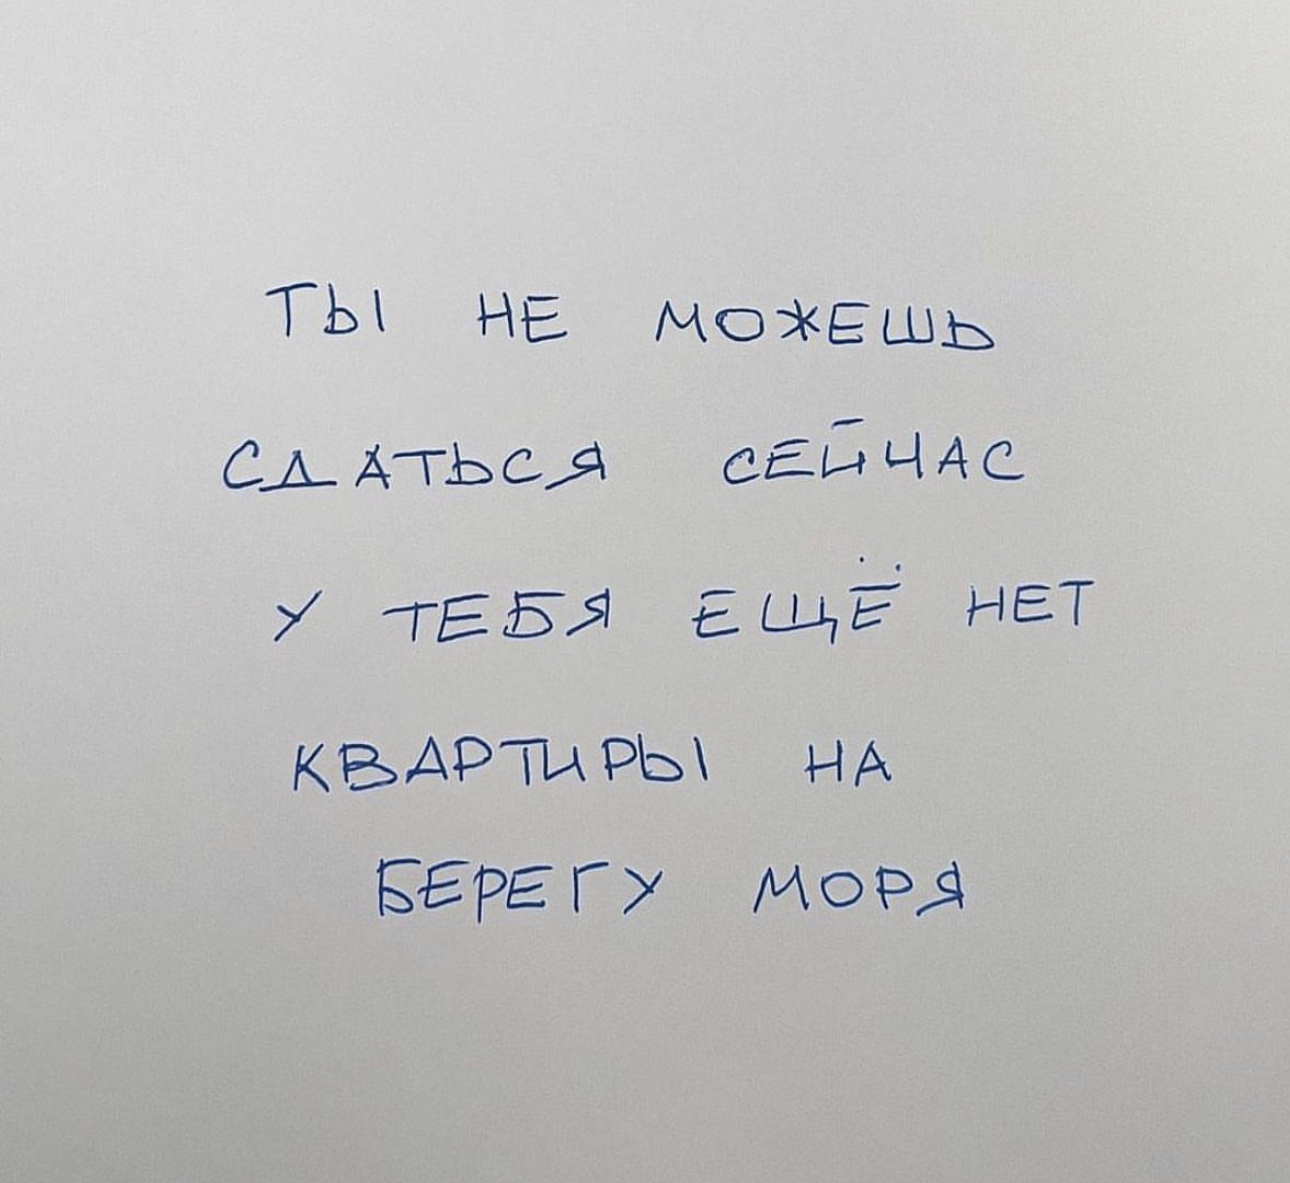 ТЫ НЕ МОЖЕШЬ
СДАТЬСЯ СЕЙЧАС
У ТЕБЯ ЕЩЁ НЕТ
КВАРТИРЫ НА
БЕРЕГУ МОРЯ